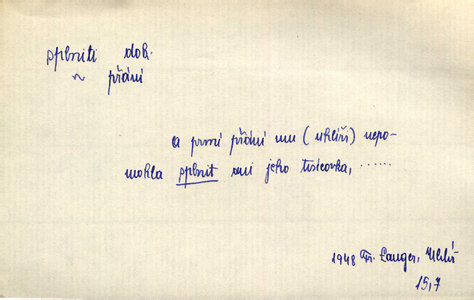 splniti dok.
~ přání
a první přání mu (uhlíři) nepo-
mohla splnit ani jeho tisícovka, ......
1948 Fr. Langer, Uhlíř
15,7